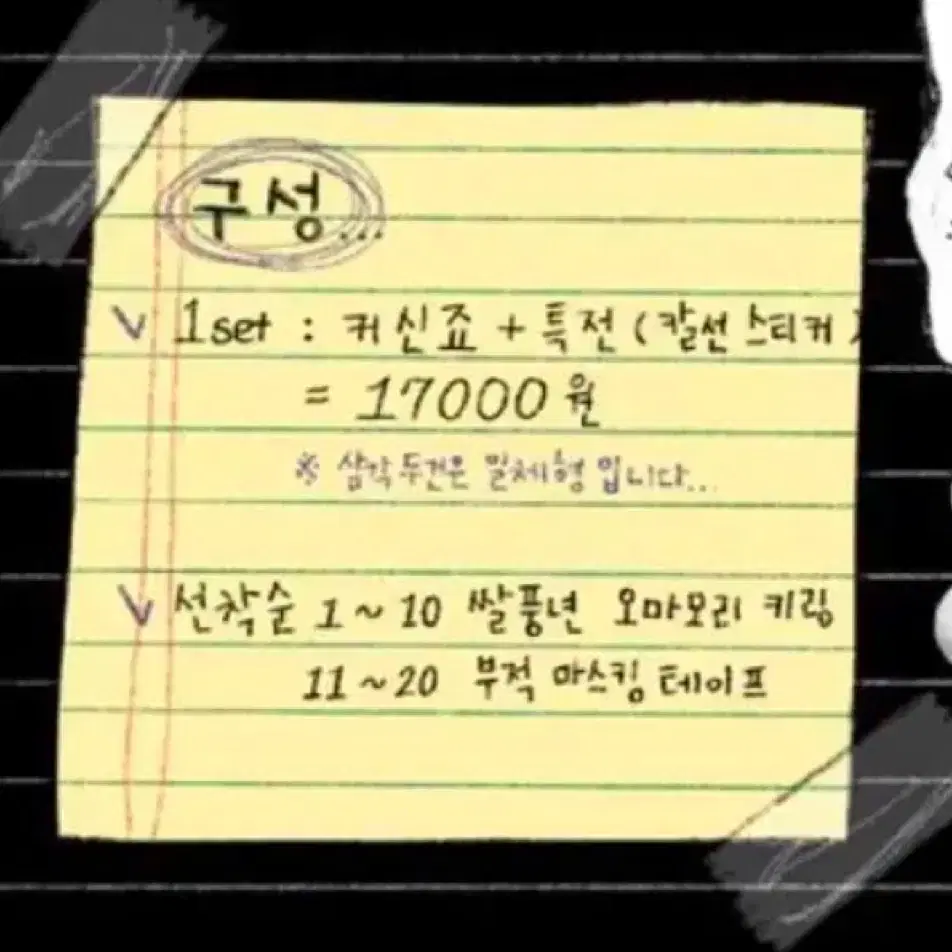 구성...
V 1set : 커신죠 + 특전 (칼선 스티커)
= 17000원
※ 삼각두건은 일체형 입니다...
V 선착순 1 ~ 10 쌀풍년 오마모리 키링
11 ~ 20 부적 마스킹 테이프